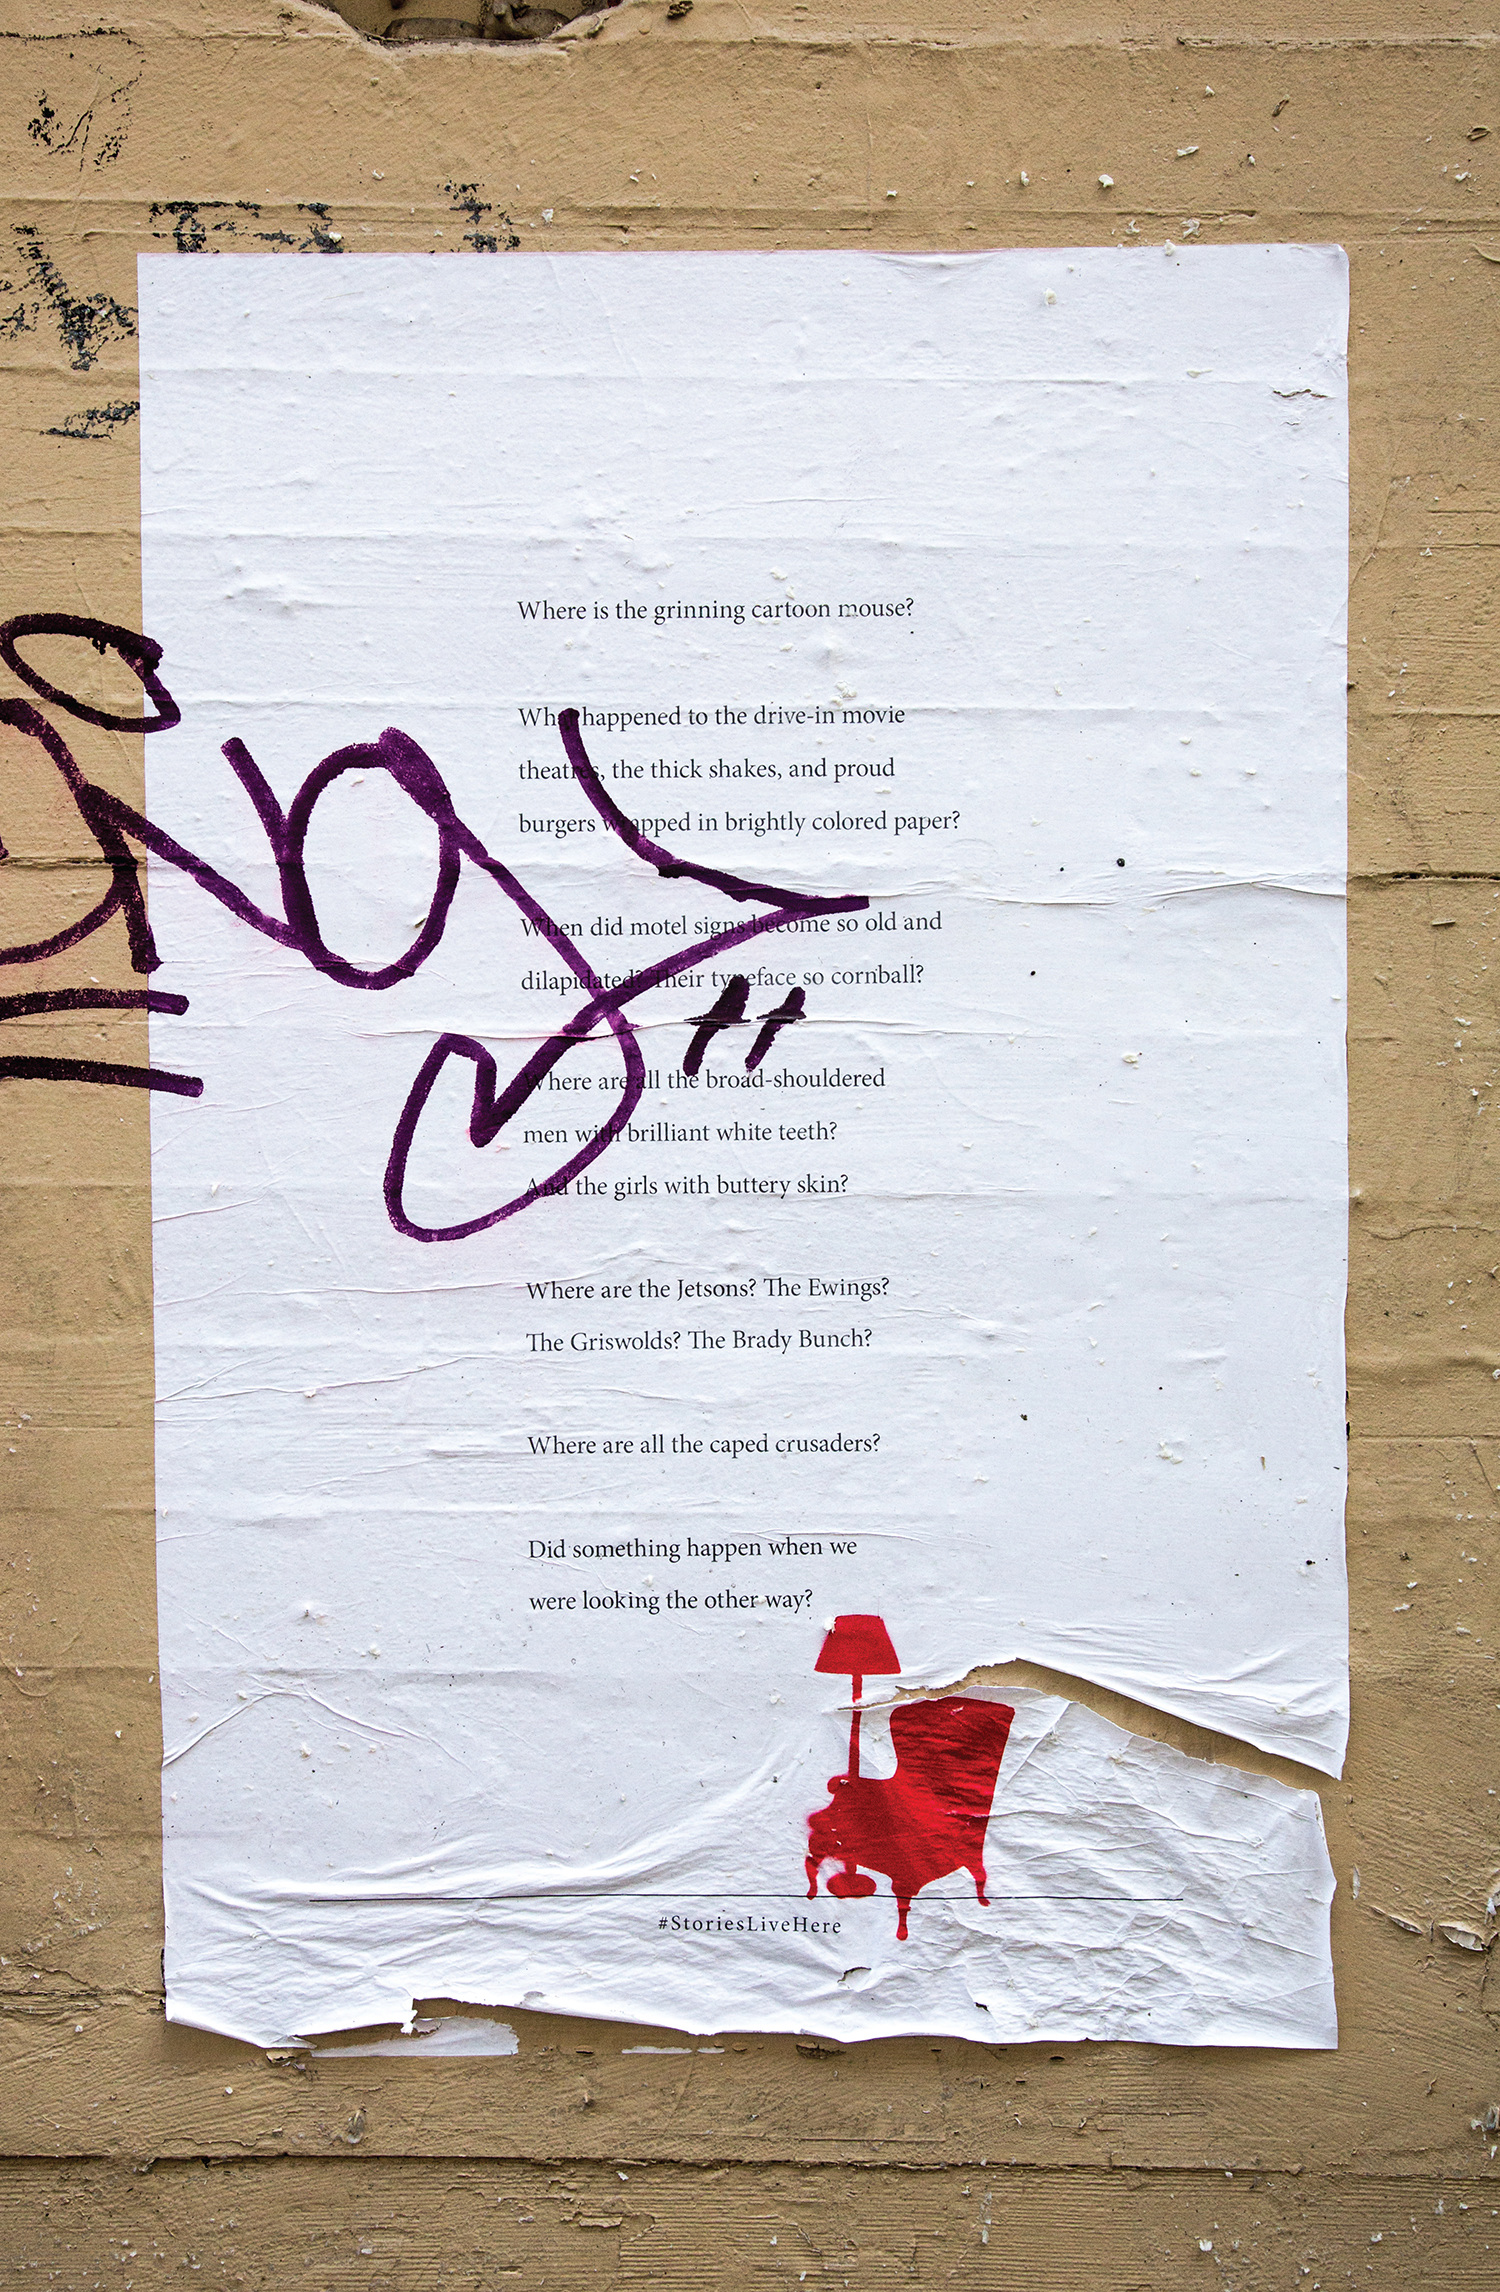 Where is the grinning cartoon mouse?
What happened to the drive-in movie
theatres, the thick shakes, and proud
burgers wrapped in brightly colored paper?
When did motel signs become so old and
dilapidated? Their typeface so cornball?
Where are all the broad-shouldered
men with brilliant white teeth?
And the girls with buttery skin?
Where are the Jetsons? The Ewings?
The Griswolds? The Brady Bunch?
Where are all the caped crusaders?
Did something happen when we
were looking the other way?
#StoriesLiveHere